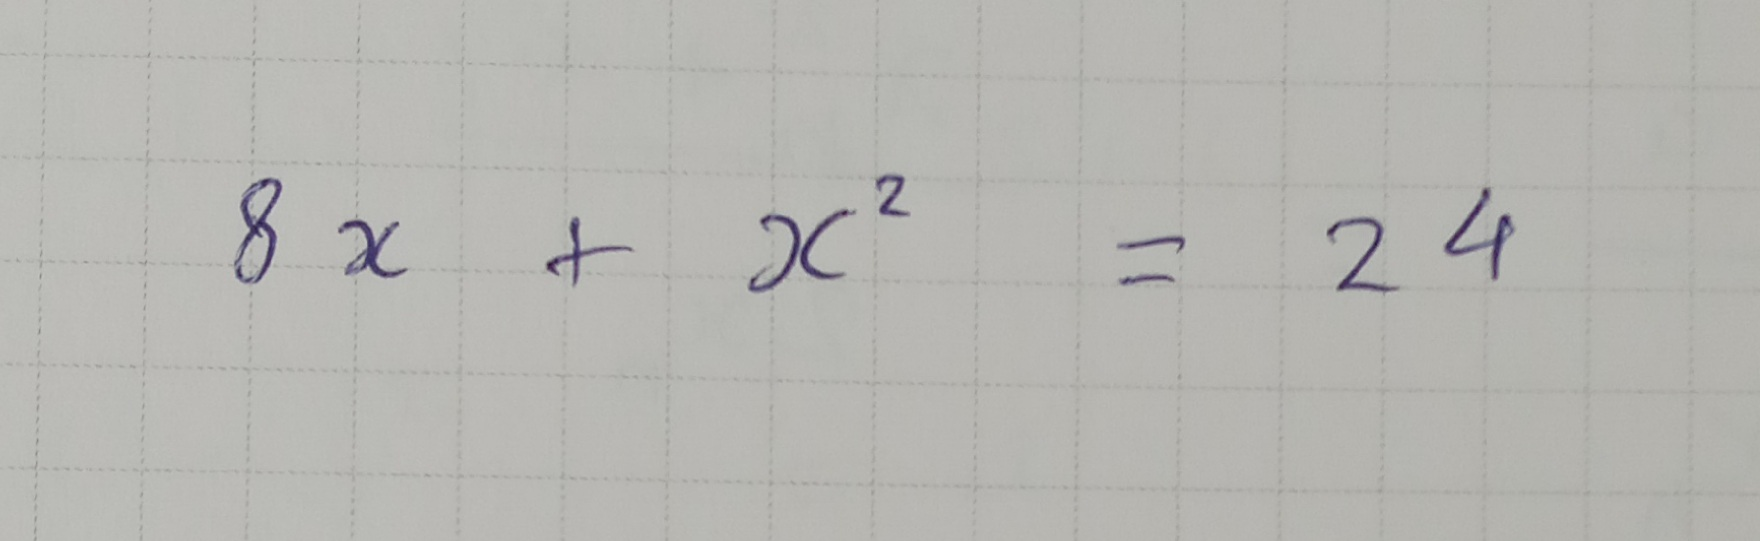 8x + x² = 24